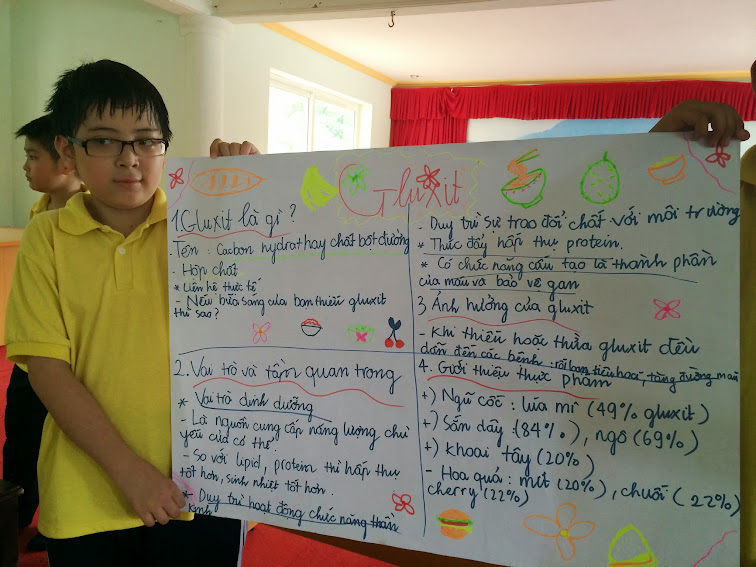 Gluxit
1. Gluxit là gì?
- Tên: Cacbon hydrat hay chất bột đường
- Hợp chất
* Liên hệ thực tế
- Nếu bữa sáng của bạn thiếu gluxit
thì sao?
2. Vai trò và tầm quan trọng
* Vai trò dinh dưỡng
- Là nguồn cung cấp năng lượng chủ
yếu của cơ thể.
- So với lipid, protein thì hấp thụ
tốt hơn, sinh nhiệt tốt hơn.
* - Duy trì hoạt động chức năng thần
kinh
. Duy trì sự trao đổi chất với môi trường
* Thúc đẩy hấp thụ protein.
* Có chức năng cấu tạo là thành phần
của máu và bảo vệ gan
3. Ảnh hưởng của gluxit
- Khi thiếu hoặc thừa gluxit đều
dẫn đến các bệnh: rối loạn tiêu hoá, tăng đường máu
4. Giới thiệu thực phẩm
+) Ngũ cốc: lúa mì (49% gluxit)
+) Sắn dây (84%), ngô (69%)
+) khoai tây (20%)
- Hoa quả: mít (20%), chuối (22%)
cherry (22%)